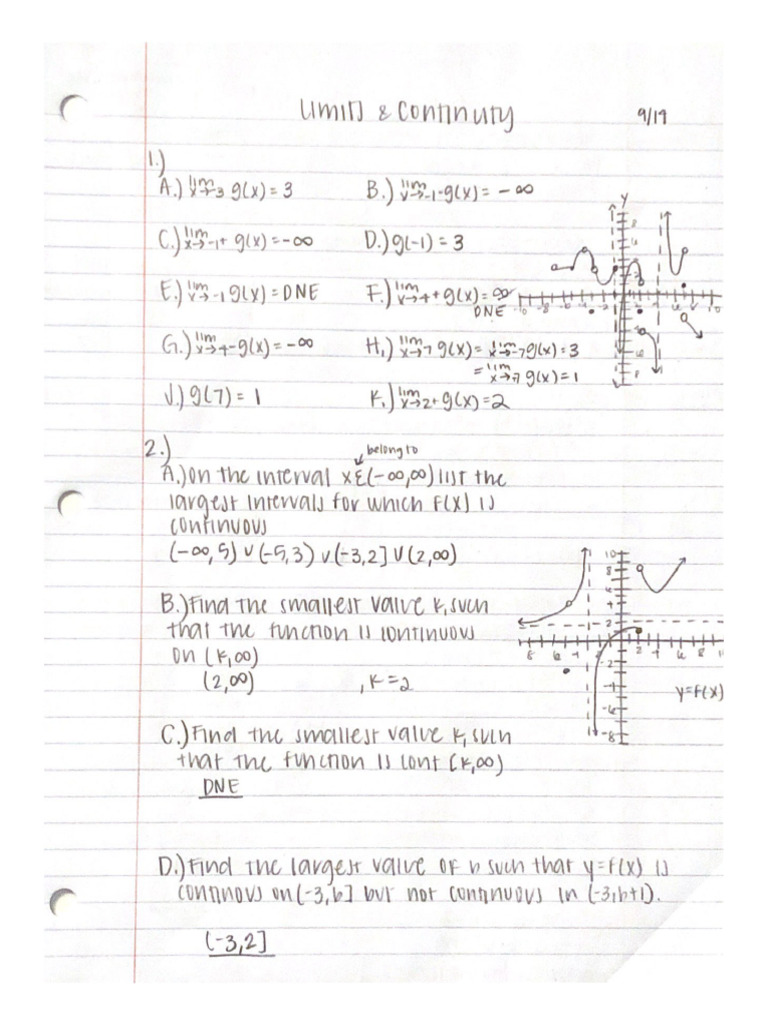 Limits & Continuity 9/19
1.)
A.) lim x→-3 g(x) = 3 B.) lim x→-1- g(x) = -∞
C.) lim x→-1+ g(x) = -∞ D.) g(-1) = 3
E.) lim x→-1 g(x) = DNE F.) lim x→4+ g(x) = ∞
DNE
G.) lim x→4- g(x) = -∞ H.) lim x→7 g(x) = lim x→-7 g(x) = 3
= lim x→7 g(x) = 1
J.) g(7) = 1 K.) lim x→2+ g(x) = 2
y
2.)
belong to
A.) On the interval x∈(-∞,∞) list the
largest intervals for which f(x) is
continuous
(-∞,5) ∪ (-5,3) ∪ (-3,2] ∪ (2,∞)
B.) Find the smallest value k, such
that the function is continuous
on (k,∞)
(2,∞) , k = 2
y=f(x)
C.) Find the smallest value k, such
that the function is cont (k,∞)
DNE
D.) Find the largest value of b such that y=f(x) is
continous on (-3,b] but not continuous in (-3,b+1).
(-3,2]